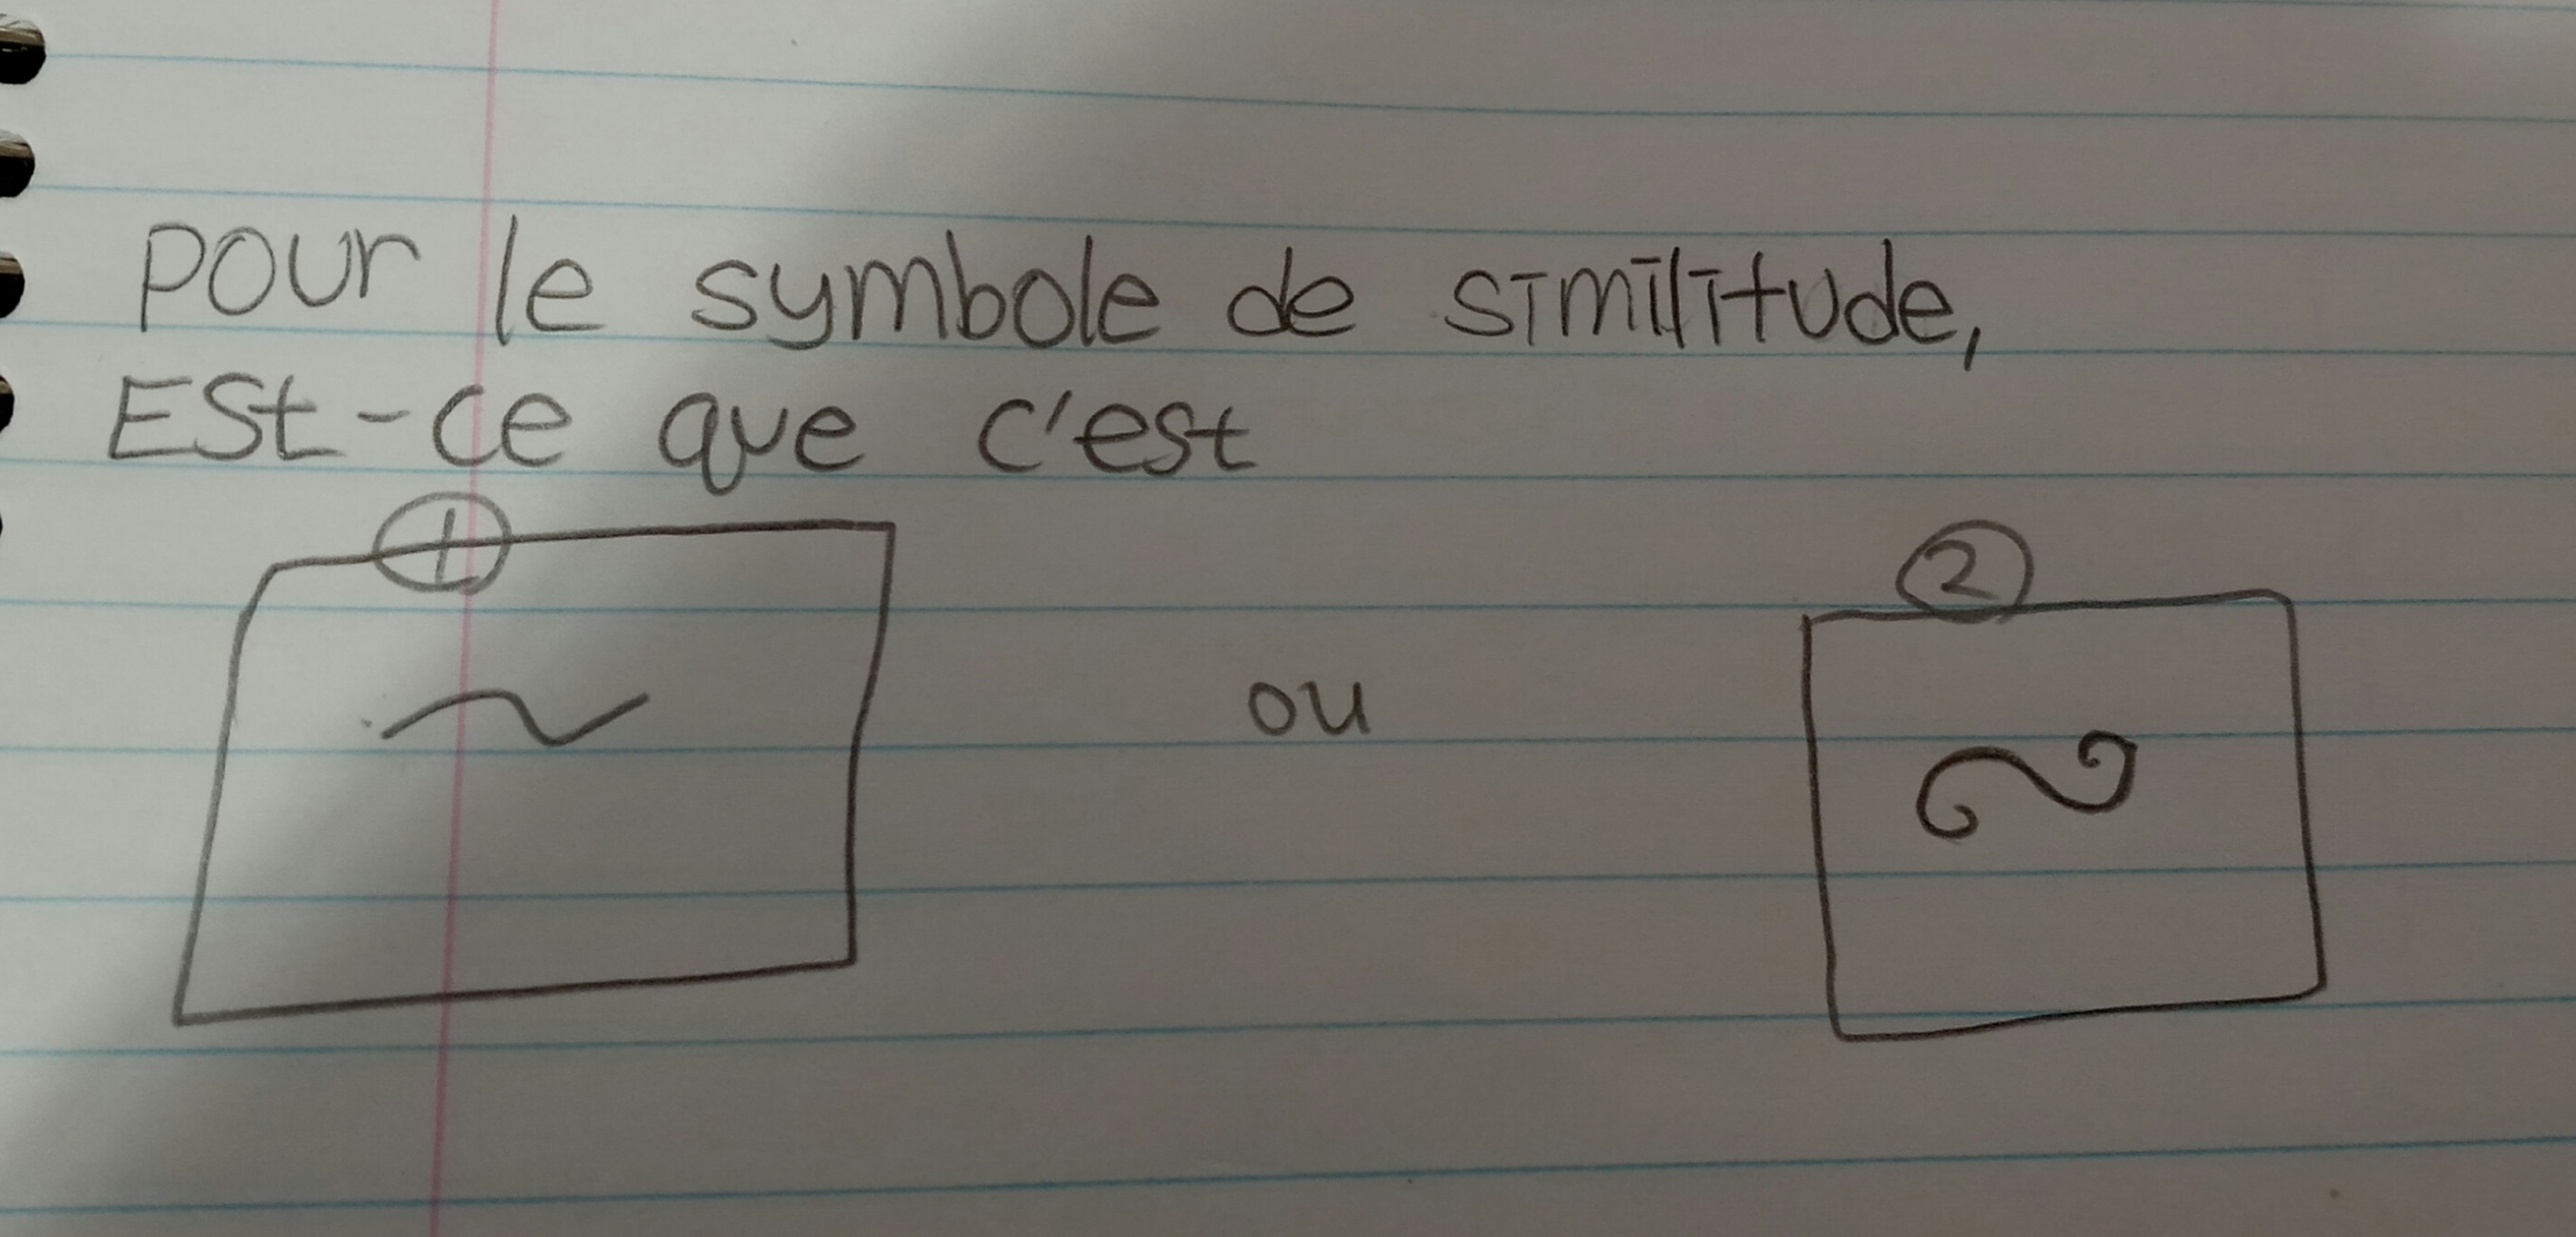 Pour le symbole de similitude,
Est-ce que c'est
① ②
~ ou ∾